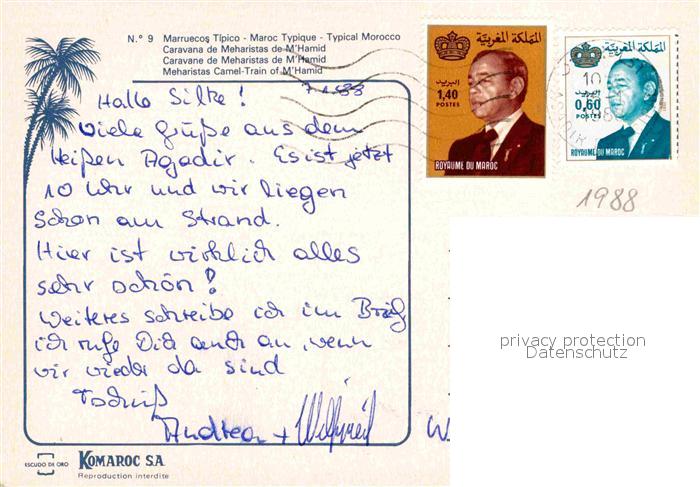 N.º 9 Marruecos Típico - Maroc Typique - Typical Morocco
Caravana de Meharistas de M'Hamid
Caravane de Meharistes de M'Hamid
Meharistas Camel-Train of M'Hamid
7.1.88
Hallo Silke!
Viele Grüße aus dem
heißen Agadir. Es ist jetzt
10 Uhr und wir liegen
schon am Strand.
Hier ist wirklich alles
sehr schön!
Weiteres schreibe ich im Brief
ich rufe Dich auch an, wenn
wir wieder da sind
Tschüß
Andrea +
W
المملكة المغربية
البريد
1,40
POSTES
ROYAUME DU MAROC
المملكة المغربية
البريد
0,60
POSTES
ROYAUME DU MAROC
10
1988
privacy protection
Datenschutz
ESCUDO DE ORO
KOMAROC S.A.
Reproduction interdite